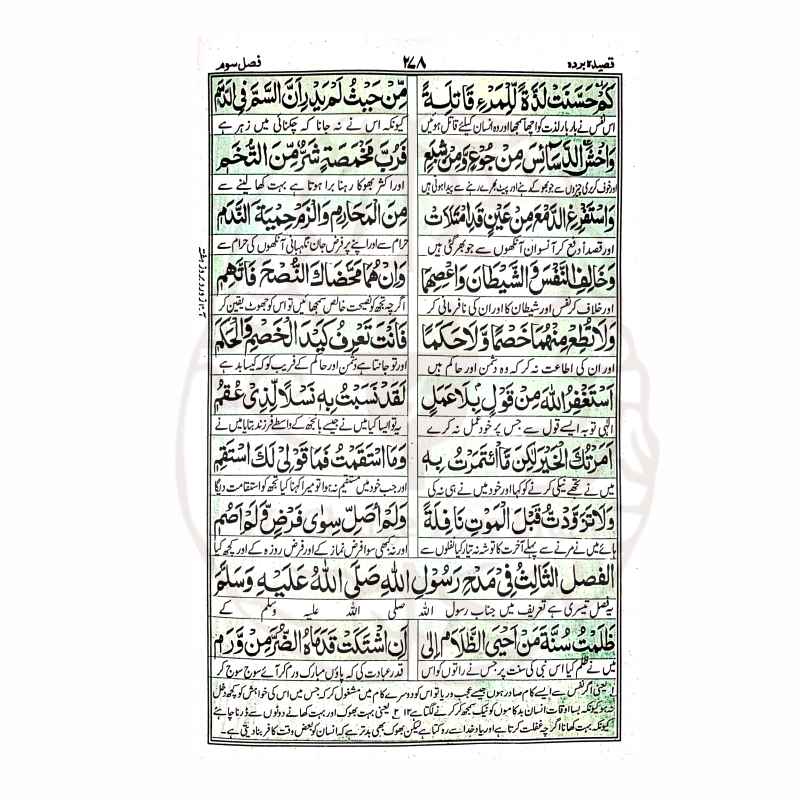 قصیدہ بردہ
۲۷۸
فصل سوم
كَمْ حَسَّنَتْ لَذَّةً لِّلْمَرْءِ قَاتِلَةً
مِّنْ حَيْثُ لَمْ يَدْرِ اَنَّ السَّمَّ فِي الدَّسَمِ
اس نفس نے بار بار لذت کو اچھا سمجھا اور وہ انسان کیلئے قاتل ہوئیں
کیونکہ اس نے نہ جانا کہ چکنائی میں زہر ہے
وَاخْشَ الدَّسَآئِسَ مِنْ جُوْعٍ وَّمِنْ شِبَعٍ
فَرُبَّ مَخْمَصَةٍ شَرٌّ مِّنَ التُّخَمِ
اور خوف کر بری چیزوں سے جو بھوکے رہنے اور پیٹ بھرے رہنے سے پیدا ہوتی ہیں
اور اکثر بھوکا رہنا برا ہوتا ہے بہت کھا لینے سے
وَاسْتَفْرِغِ الدَّمْعَ مِنْ عَيْنٍ قَدِ امْتَلَأَتْ
مِنَ الْمَحَارِمِ وَالْزَمْ حِمْيَةَ النَّدَمِ
اور قصداً دفع کر آنسو ان آنکھوں سے جو بھر گئی ہیں
حرام سے اور اپنے پر فرض جان نگہبانی آنکھوں کی حرام سے
وَخَالِفِ النَّفْسَ وَالشَّيْطَانَ وَاعْصِهِمَا
وَاِنْ هُمَا مَحَّضَاكَ النُّصْحَ فَاتَّهِمِ
اور خلاف کر نفس اور شیطان کا اور ان کی نافرمانی کر
اگرچہ تجھ کو نصیحت خالص سمجھائیں تو اس کو جھوٹ یقین کر
وَلَا تُطِعْ مِنْهُمَا خَصْمًا وَّلَا حَكَمًا
فَاَنْتَ تَعْرِفُ كَيْدَ الْخَصْمِ وَالْحَكَمِ
اور ان کی اطاعت نہ کر کہ وہ دشمن اور حاکم ہیں
اور تو جانتا ہے دشمن اور حاکم کے فریب کو کہ کیسا بد ہے
اَسْتَغْفِرُ اللهَ مِنْ قَوْلٍ بِلَا عَمَلٍ
لَقَدْ نَسَبْتُ بِهٖ نَسْلًا لِّذِيْ عُقُمٍ
الٰہی توبہ ایسے قول سے جس پر خود عمل نہ کرے
یہ تو ایسا کیا میں نے جیسے بانجھ کے واسطے فرزند بتایا میں نے
اَمَرْتُكَ الْخَيْرَ لٰكِنْ مَّا ائْتَمَرْتُ بِهٖ
وَمَا اسْتَقَمْتُ فَمَا قَوْلِيْ لَكَ اسْتَقِمِ
میں نے تجھے نیکی کرنے کو کہا اور خود میں نے ہی نہ کی
اور جب خود میں مستقیم نہ ہوا تو میرا کہنا کیا تجھ کو استقامت دیگا
وَلَا تَزَوَّدْتُ قَبْلَ الْمَوْتِ نَافِلَةً
وَلَمْ اُصَلِّ سِوٰى فَرْضٍ وَّلَمْ اَصُمِ
ہائے میں نے مرنے سے پہلے آخرت کا توشہ نہ تیار کیا نفلوں سے
اور نہ کبھی سوا فرض نماز کے اور فرض روزہ کے اور کچھ کیا
الفصل الثالث فِيْ مَدْحِ رَسُوْلِ اللهِ صَلَّى اللهُ عَلَيْهِ وَسَلَّمَ
یہ فصل تیسری ہے تعریف میں جناب رسول اللہ صلی اللہ علیہ وسلم کے
ظَلَمْتُ سُنَّةَ مَنْ اَحْيَى الظَّلَامَ اِلٰى
اَنِ اشْتَكَتْ قَدَمَاهُ الضُّرَّ مِنْ وَّرَمٍ
میں نے ظلم کیا اس نبی کی سنت پر جس نے راتوں کو اس
قدر عبادت کی کہ پاؤں مبارک ورم کر آئے سوج سوج کر
۱؎ یعنی اگر نفس سے ایسے کام صادر ہوں جیسے عجب و ریا تو اس کو دوسرے کام میں مشغول کر کہ جس میں اس کی خواہش کو کچھ دخل
نہ ہو کیونکہ بسا اوقات انسان بد کاموں کو نیک سمجھ کر کرنے لگتا ہے ۱۲ ۲؎ یعنی بہت بھوک اور بہت کھانے دونوں سے ڈرنا چاہئے
کیونکہ بہت کھانا اگرچہ غفلت کرتا ہے اور یاد خدا سے روکتا ہے لیکن بھوک بھی بدتر ہے کہ انسان کو بعض وقت کافر بنا دیتی ہے۔